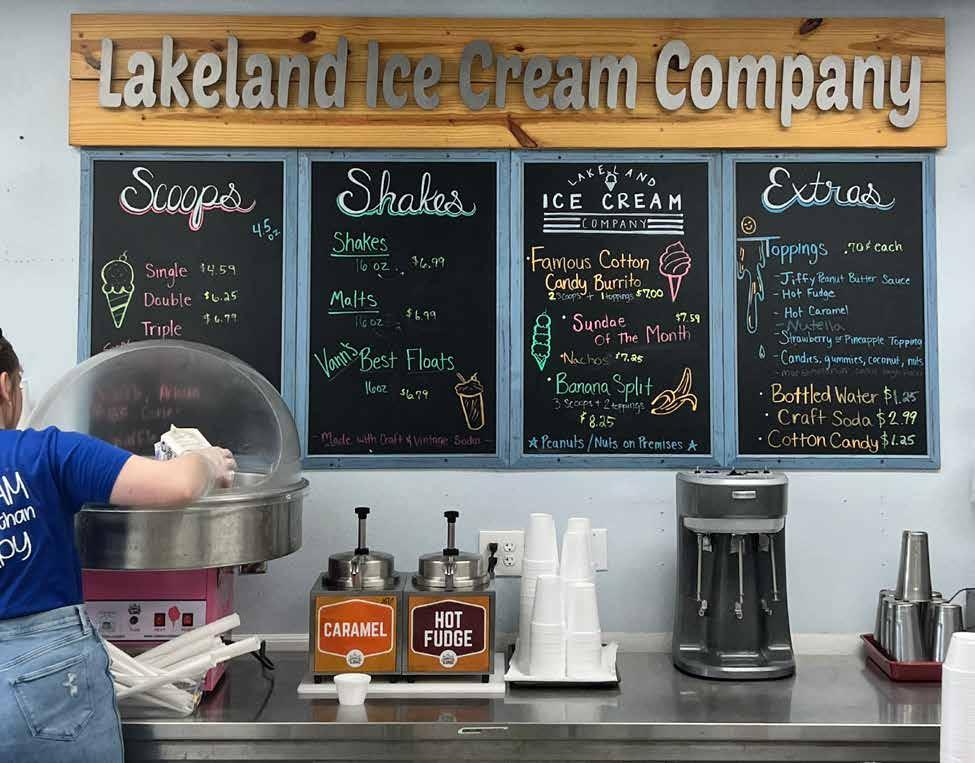 Lakeland Ice Cream Company
Scoops
4.5 oz
Single $4.59
Double $6.25
Triple
Shakes
Shakes
16 oz. $6.99
Malts
16 oz $6.99
Vann's Best Floats
16oz $6.79
- Made with Craft & Vintage Soda -
LAKELAND
ICE CREAM
COMPANY
• Famous Cotton
Candy Burrito
2 scoops + 1 toppings $7.00
• Sundae $7.59
Of The Month
• Nachos $7.25
• Banana Split
3 scoops + 2 toppings
$8.25
★ Peanuts / Nuts on Premises ★
Extras
Toppings .70¢ each
- Jiffy Peanut Butter Sauce
- Hot Fudge
- Hot Caramel
- Nutella
- Strawberry or Pineapple Topping
- Candies, gummies, coconut, nuts
• Bottled Water $1.25
• Craft Soda $2.99
• Cotton Candy $1.25
AM
than
py
CARAMEL
HOT
FUDGE